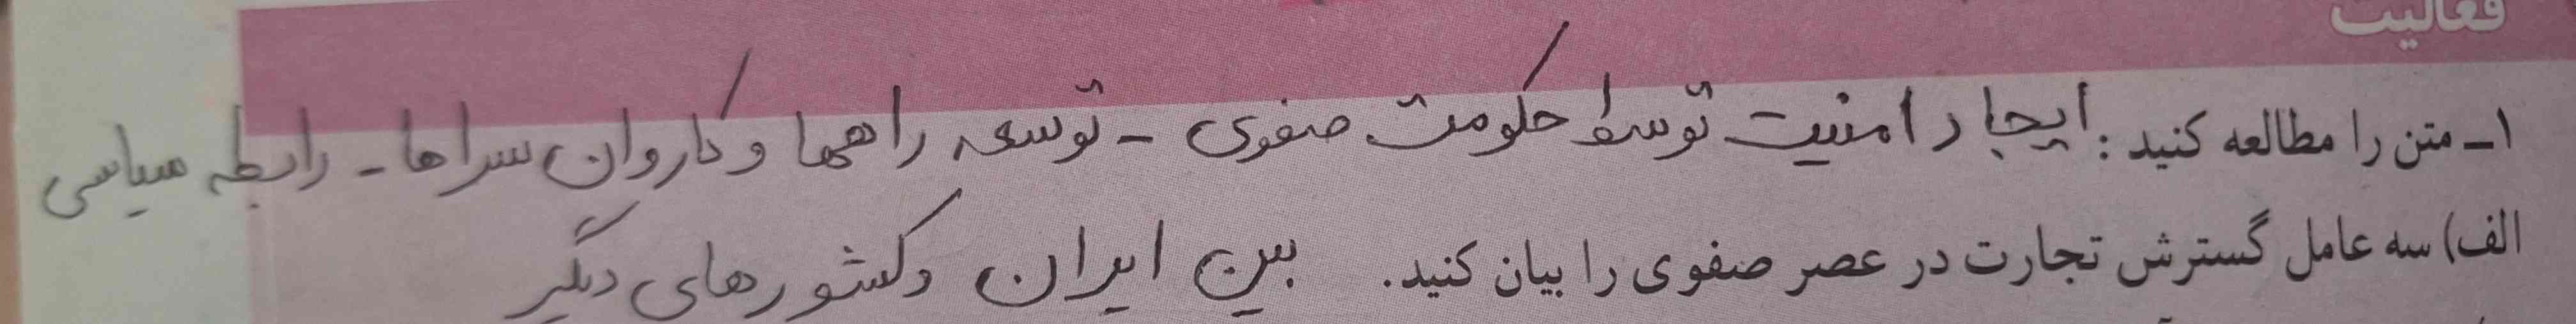 فعالیت
۱ـ متن را مطالعه کنید : ایجاد امنیت توسط حکومت صفوی - توسعه راهها و کاروان سراها - رابطه سیاسی
الف) سه عامل گسترش تجارت در عصر صفوی را بیان کنید. بین ایران و کشورهای دیگر